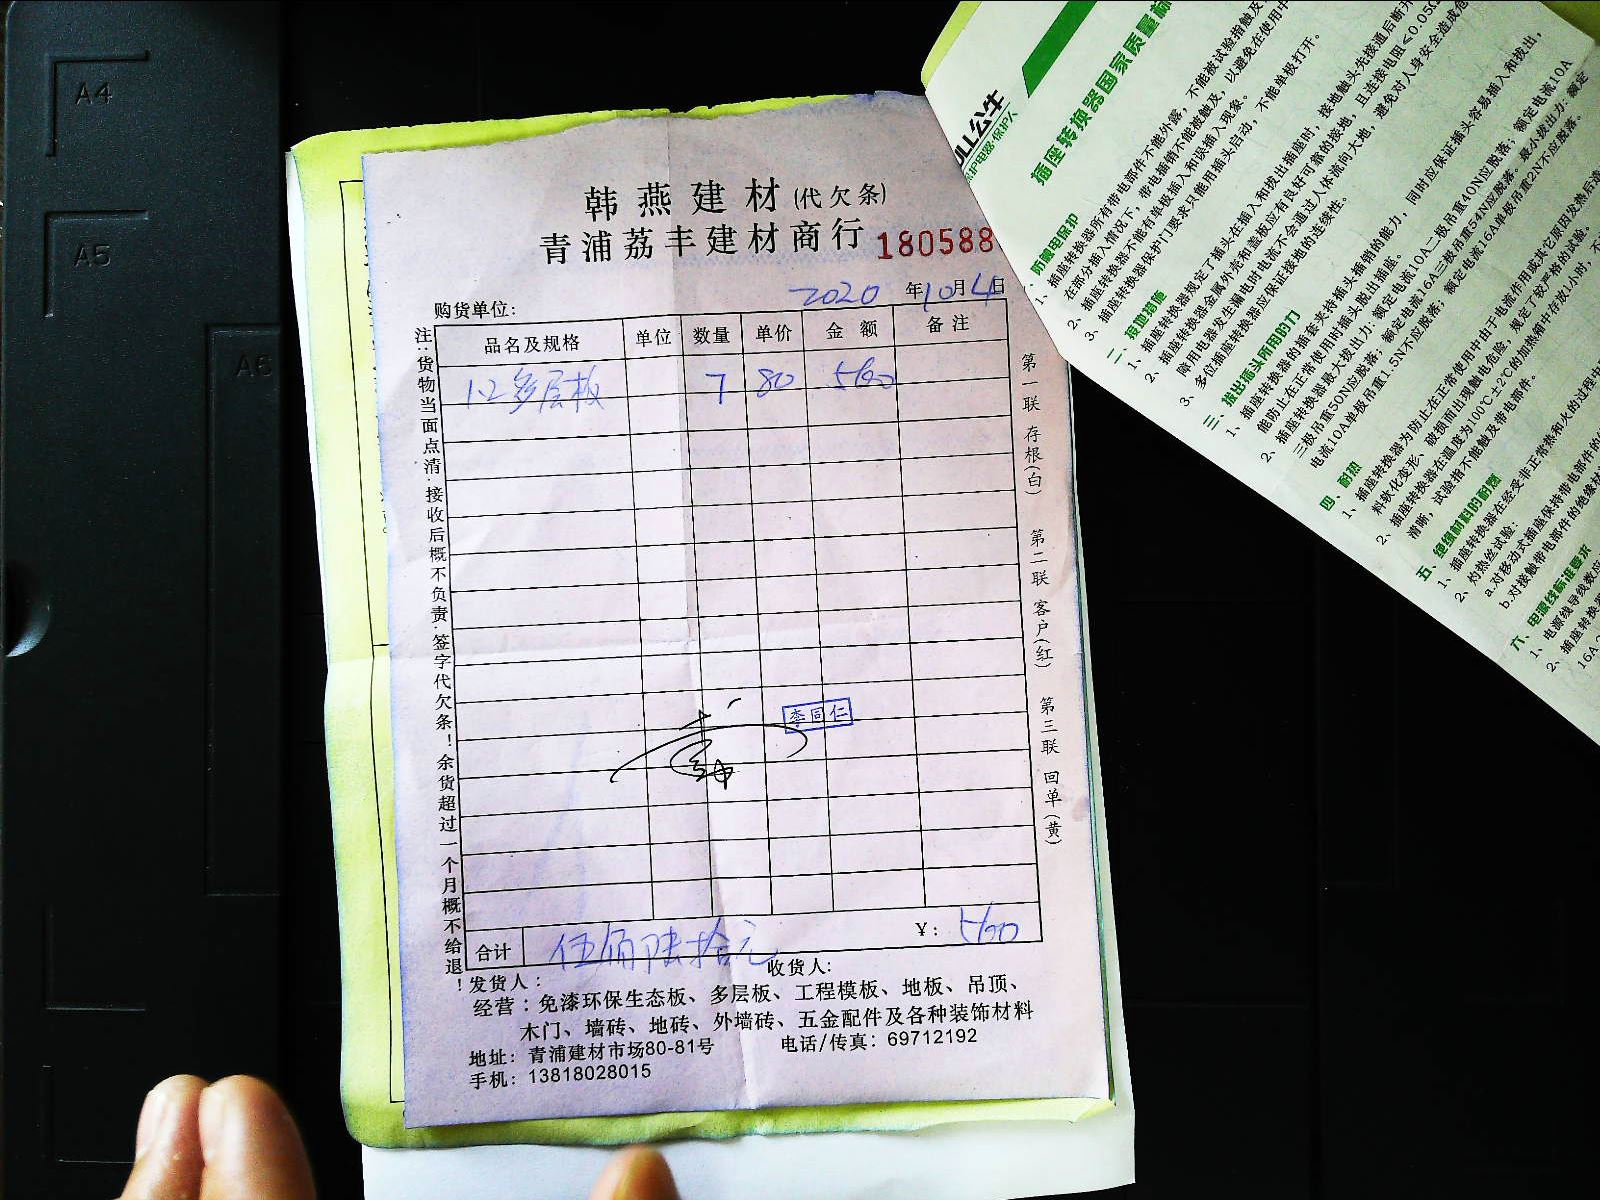 A4
A5
A6
韩燕建材(代欠条)
青浦荔丰建材商行 180588
购货单位: 2020 年 10 月 4 日
品名及规格 单位 数量 单价 金额 备注
1.2多层板 7 80 560
李同仁
合计 伍佰陆拾元 ¥: 560
发货人: 收货人:
经营:免漆环保生态板、多层板、工程模板、地板、吊顶、
木门、墙砖、地砖、外墙砖、五金配件及各种装饰材料
地址:青浦建材市场80-81号 电话/传真:69712192
手机:13818028015
注:货物当面点清·接收后概不负责·签字代欠条!余货超过一个月概不给退!
第一联 存根(白) 第二联 客户(红) 第三联 回单(黄)
ULL公牛
护电器·保护人
插座转换器国家质量标
防触电保护
1、插座转换器所有带电部件不能外露,不能被试验指触及
在部分插入情况下,带电插销不能被触及,以避免在使用中
2、插座转换器不能有单极插入和误插入现象。
3、插座转换器保护门要求只能用插头启动,不能单极打开。
二、接地措施
1、插座转换器规定了插头在插入和拔出插座时,接地触头先接通后断开
2、插座转换器金属外壳和盖板应有良好可靠的接地,且连接电阻≤0.05Ω
降用电器发生漏电时电流不会通过人体流向大地,避免对人身安全造成危
3、多位插座转换器应保证接地的连续性。
三、拔出插头所用的力
1、插座转换器的插套夹持插头插销的能力,同时应保证插头容易插入和拔出,
能防止在正常使用时插头脱出插座。
2、插座转换器最大拔出力:额定电流10A二极吊重40N应脱落;额定电流10A
三极吊重50N应脱落;额定电流16A三极吊重54N应脱落。最小拔出力:额定
电流10A单极吊重1.5N不应脱落;额定电流16A单极吊重2N不应脱落。
四、耐热
1、插座转换器为防止在正常使用中由于电流作用或其它原因发热后造
料软化变形、破损而出现触电危险,规定了较严格的试验。
2、插座转换器在温度为100℃±2℃的加热箱中存放1小时,
清晰,试验指不能触及带电部件。
五、绝缘材料的耐燃
1、插座转换器在经受非正常热和火的过程中
2、灼热丝试验:
a.对移动式插座保持带电部件的
b.对接触带电部件的绝缘材
六、电源线标准要求
1、电源线导线数应
2、插座转换器
16A